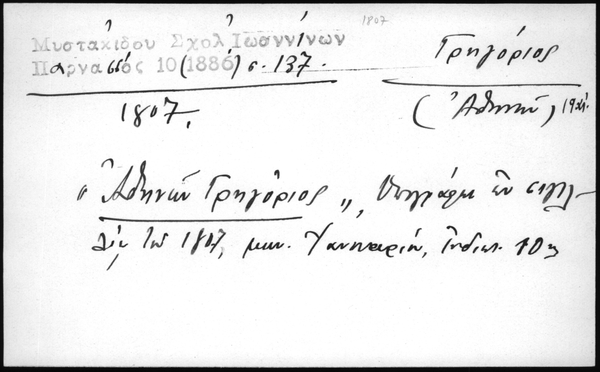 1807
Μυστακίδου Σχολ Ἰωαννίνων
Παρνασσός 10 (1886) σ. 137.
Γρηγόριος
1807.
(Ἀθηνῶν)
"Ἀθηνῶν Γρηγόριος", ὑπογράφει ἐν σιγιλ-
τοῦ 1807, μην. Ἰαννουαρίῳ, Ἰνδικτ. 10η